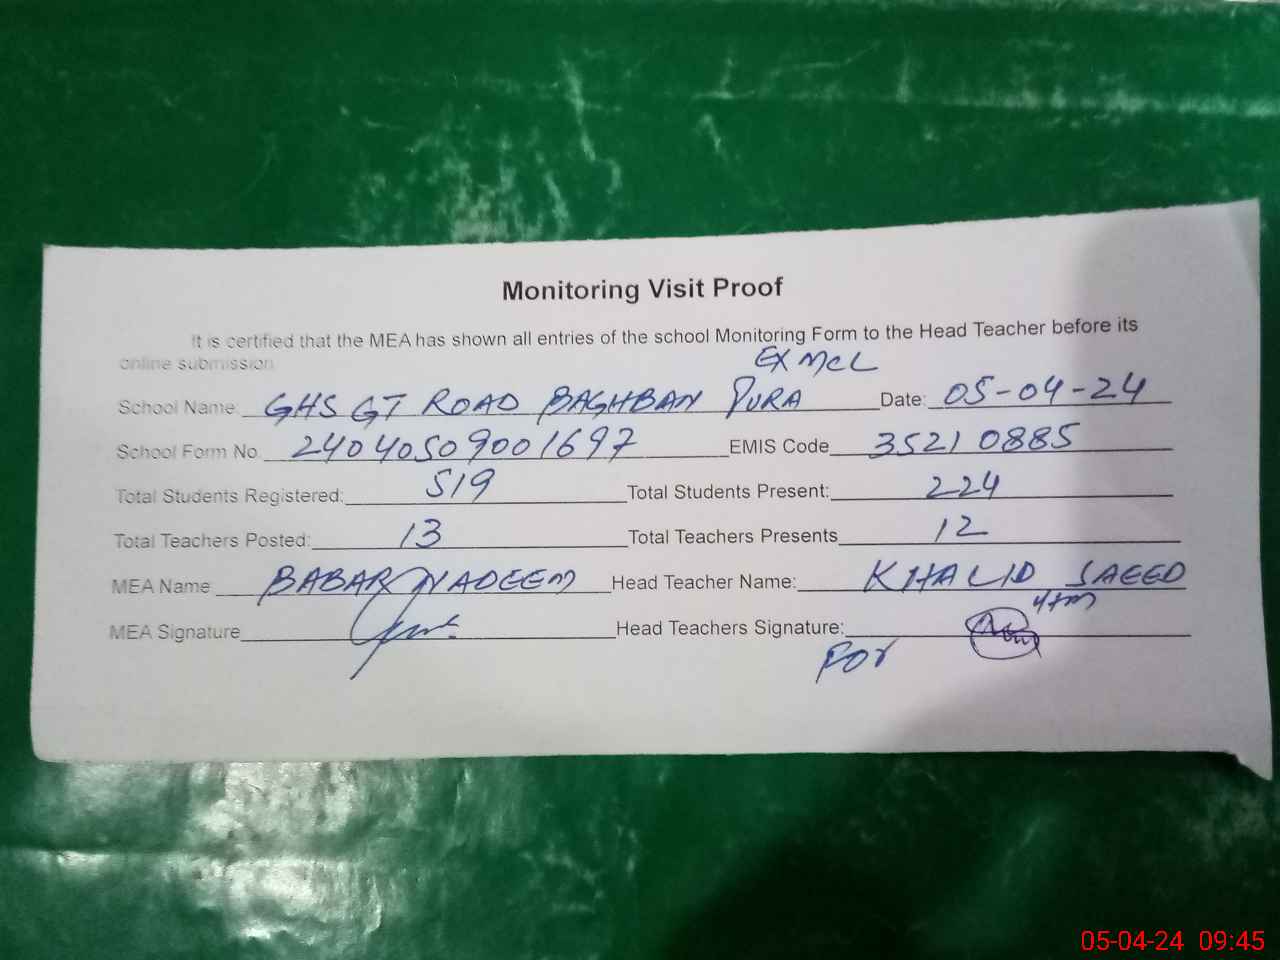 Monitoring Visit Proof
It is certified that the MEA has shown all entries of the school Monitoring Form to the Head Teacher before its
online submission
EX MCL
School Name: GHS GT ROAD BAGHBAN PURA Date: 05-04-24
School Form No. 24040509001697 EMIS Code 35210885
Total Students Registered: 519 Total Students Present: 224
Total Teachers Posted: 13 Total Teachers Presents 12
MEA Name BABAR NADEEM Head Teacher Name: KHALID SAEED
MEA Signature Head Teachers Signature:
For
05-04-24 09:45